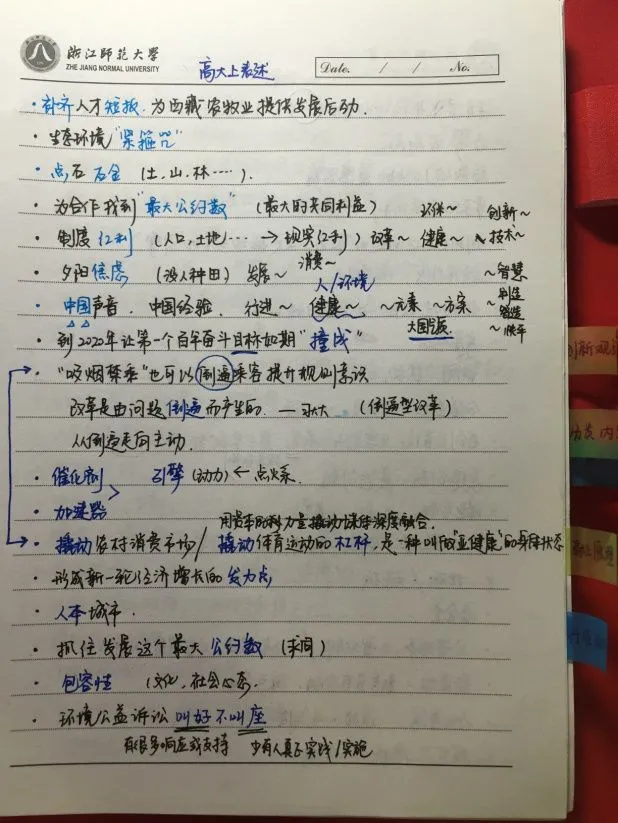 浙江師范大学
ZHE JIANG NORMAL UNIVERSITY
高大上表述
Date. / / No.
·补齐人才短板.为西藏农牧业提供发展后劲.
·生态环境"紧箍咒"
·点石成金 (土,山,林……).
·为合作找到"最大公约数" (最大的共同利益) 环保~ 创新~
·制度红利 (人口,土地… → 现实红利) 改革~ 健康~ 技术~
·夕阳焦虑 (没人种田) 发展~ 消费~ ~智慧
人/环境 制造
·中国声音.中国经验. 行进~ 健康~ ~元素 ~方案 智造
大国 ~
·到2020年让第一个百年奋斗目标如期"撞线"
·"吸烟禁乘"也可以倒逼乘客提升规则意识
改革是由问题倒逼而产生的. — 习大大 (倒逼型改革)
从倒逼走向主动.
·催化剂 引擎 (动力) ← 点火系.
·加速器
用资本的力量撬动媒体深度融合.
·撬动农村消费市场/ 撬动体育运动的杠杆,是一种叫做"亚健康"的身体状态
·形成新一轮经济增长的发力点
·人本城市.
·抓住发展这个最大公约数 (求同)
·包容性 (文化,社会心态.
·环境公益诉讼叫好不叫座
有很多响应或支持 少有人真正实践/实施